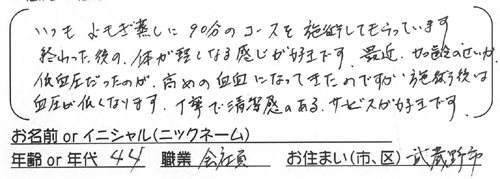 いつも よもぎ蒸しに90分のコースを施術してもらっています
終わった後の、体が軽くなる感じが好きです。最近、加齢のせいか
低血圧だったのが、高めの血圧になってきたのですが施術後は
血圧が低くなります。丁寧で清潔感のある、サービスが好きです。
お名前orイニシャル(ニックネーム)
年齢or年代 44 職業 会社員 お住まい(市、区) 武蔵野市